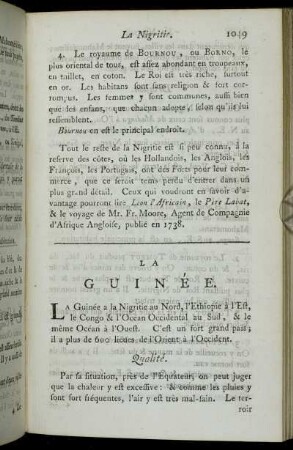 La Nigritie. 1049
4. Le royaume de BOURNOU, ou BORNO, le
plus oriental de tous, est assez abondant en troupeaux,
en taillet, en coton. Le Roi est très riche, surtout
en or. Les habitans sont sans religion & fort cor-
rompus. Les femmes y sont communes, aussi bien
que des enfans, que chacun adopte, selon qu'ils lui
ressemblent.
Bournou en est le principal endroit.
Tout le reste de la Nigritie est si peu connu, à
la reserve des côtes, où les Hollandois, les Anglois, les
François, les Portugais, ont des Forts pour leur com-
merce, que ce seroit tems perdu d'entrer dans un
plus grand détail. Ceux qui voudront en savoir d'a-
vantage pourront lire Leon l'Africain, le Père Labat,
& le voyage de Mr. Fr. Moore, Agent de Compagnie
d'Afrique Angloise, publié en 1738.
LA
GUINÉE.
LA Guinée a la Nigritie au Nord, l'Ethiopie à l'Est,
le Congo & l'Océan Occidental au Sud, & le
même Océan à l'Ouest. C'est un fort grand pais;
il a plus de 600 lieues de l'Orient à l'Occident.
Qualité.
Par sa situation, près de l'Equateur, on peut juger
que la chaleur y est excessive: & comme les pluies y
sont fort fréquentes, l'air y est très mal-sain. Le ter-
roir